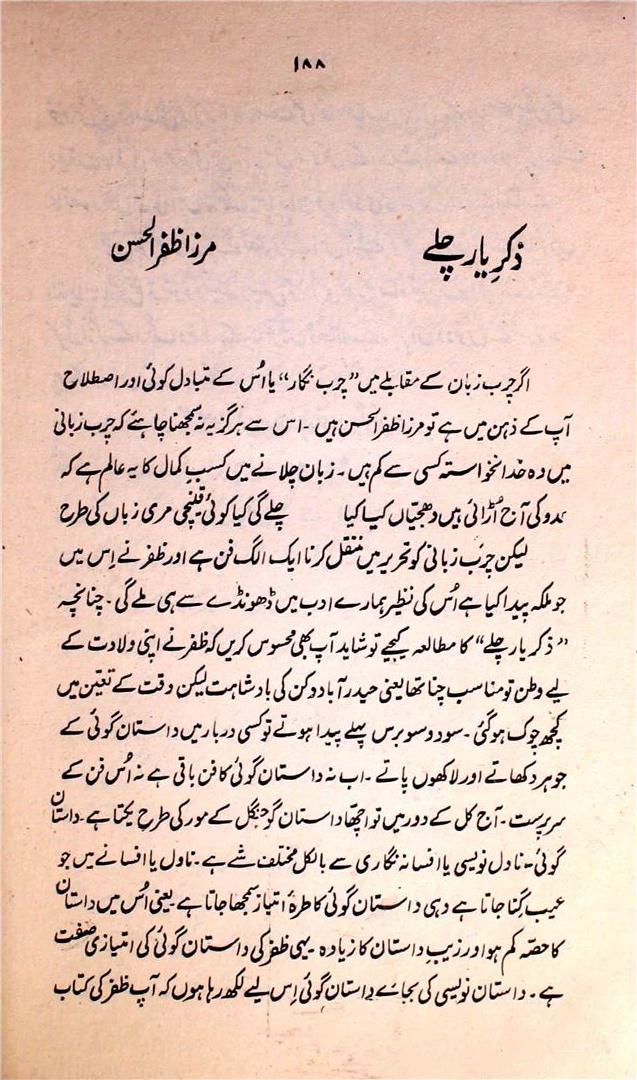 ۱۸۸
ذکرِ یار چلے مرزا ظفر الحسن
اگر چرب زبان کے مقابلے میں "چرب نگار" یا اُس کے متبادل کوئی اور اصطلاح
آپ کے ذہن میں ہے تو مرزا ظفر الحسن ہیں ۔ اس سے ہرگز یہ نہ سمجھنا چاہئے کہ چرب زبانی
میں وہ خدانخواستہ کسی سے کم ہیں ۔ زبان چلانے میں کسبِ کمال کا یہ عالم ہے کہ
عدو کی آج اُڑائی ہیں دھجیّاں کیا کیا چلے گی کیا کوئی قینچی مری زباں کی طرح
لیکن چرب زبانی کو تحریر میں منتقل کرنا ایک الگ فن ہے اور ظفر نے اِس میں
جو ملکہ پیدا کیا ہے اُس کی نظیر ہمارے ادب میں ڈھونڈے سے ہی ملے گی ۔ چنانچہ
"ذکرِ یار چلے" کا مطالعہ کیجیے تو شاید آپ بھی محسوس کریں کہ ظفر نے اپنی ولادت کے
لیے وطن تو مناسب چنا تھا یعنی حیدر آباد دکن کی بادشاہت لیکن وقت کے تعیّن میں
کچھ چوک ہوگئی ۔ سو دو سو برس پہلے پیدا ہوتے تو کسی دربار میں داستان گوئی کے
جوہر دکھاتے اور لاکھوں پاتے ۔ اب نہ داستان گوئی کا فن باقی ہے نہ اُس فن کے
سرپرست ۔ آج کل کے دور میں تو اچھا داستان گو جنگل کے مور کی طرح یکتا ہے ۔ داستان
گوئی ۔ ناول نویسی یا افسانہ نگاری سے بالکل مختلف شے ہے ۔ ناول یا افسانے میں جو
عیب گِنا جاتا ہے وہی داستان گوئی کا طرۂ امتیاز سمجھا جاتا ہے یعنی اُس میں داستان
کا حصّہ کم ہو اور زیبِ داستان کا زیادہ ۔ یہی ظفر کی داستان گوئی کی امتیازی صفت
ہے ۔ داستان نویسی کی بجائے داستان گوئی اِس لیے لکھ رہا ہوں کہ آپ ظفر کی کتاب